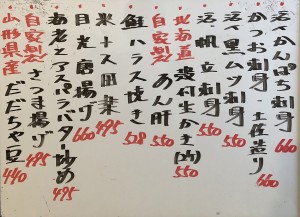 活〆かんぱち刺身 660
かつお刺身・土佐造り 660
活〆黒ムツ刺身 550
活帆立刺身 550
北海道 殻付生かき(内) 550
自家製 あん肝 550
鮭ハラス焼き 528
米ナス田楽 495
目光唐揚げ 660
海老とアスパラバター炒め 495
自家製 さつま揚げ 495
山形県産 だだちゃ豆 440